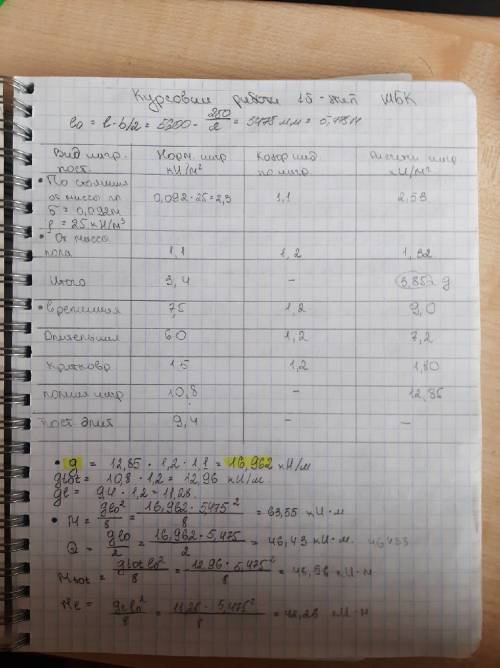 Курсовая работа 1б - этап МБК
l₀ = l - b/2 = 5600 - 250/2 = 5475 мм =
Вид нагр. Норм. нагр кН/м² Коэф над по нагр кН/м²
пост.
• По
0,092 · 25 = 2,3 1,1 2,53
δ = 0,092м
ρ = 25 кН/м³
• От массы
пола 1,1 1,2 1,32
Итого 3,4 - 3,85 g
• временная 7,5 1,2 9,0
Длительная 6.0 1,2 7,2
Кратковр 1.5 1,2 1,80
полная нагр 10,8 - 12,85
Пост длит 9,4 - -
• g = 12,85 · 1,2 · 1,1 = 16,962 кН/м
gtot = 10,8 · 1,2 = 12,96 кН/м
gl = 9,4 · 1,2 = 11,28
• M = gl₀²/8 = 16,962 · 5,475²/8 = 63,55 кН · м
Q = gl₀/2 = 16,962 · 5,475/2 = 46,43 кН · м. 46,433
Mtot = gtot l₀²/8 = 12,96 · 5,475²/8 = 48,56 кН · м
Me = gel₀²/8 = 11,28 · 5,475²/8 = 42,26 кН · м